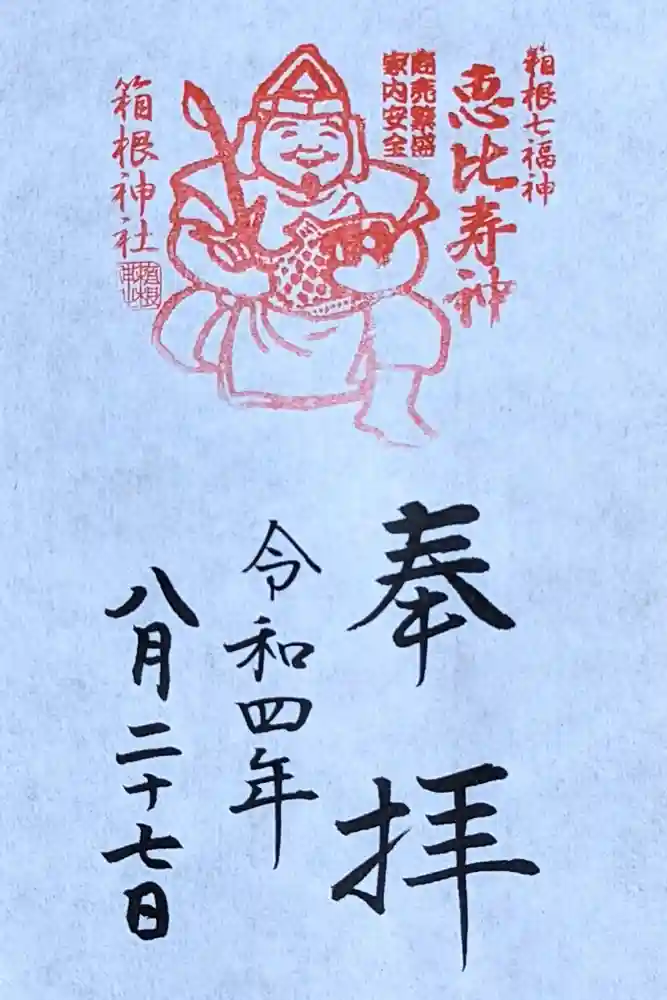 箱根七福神
恵比寿神
商売繁盛
家内安全
箱根神社
奉拝
令和四年
八月二十七日